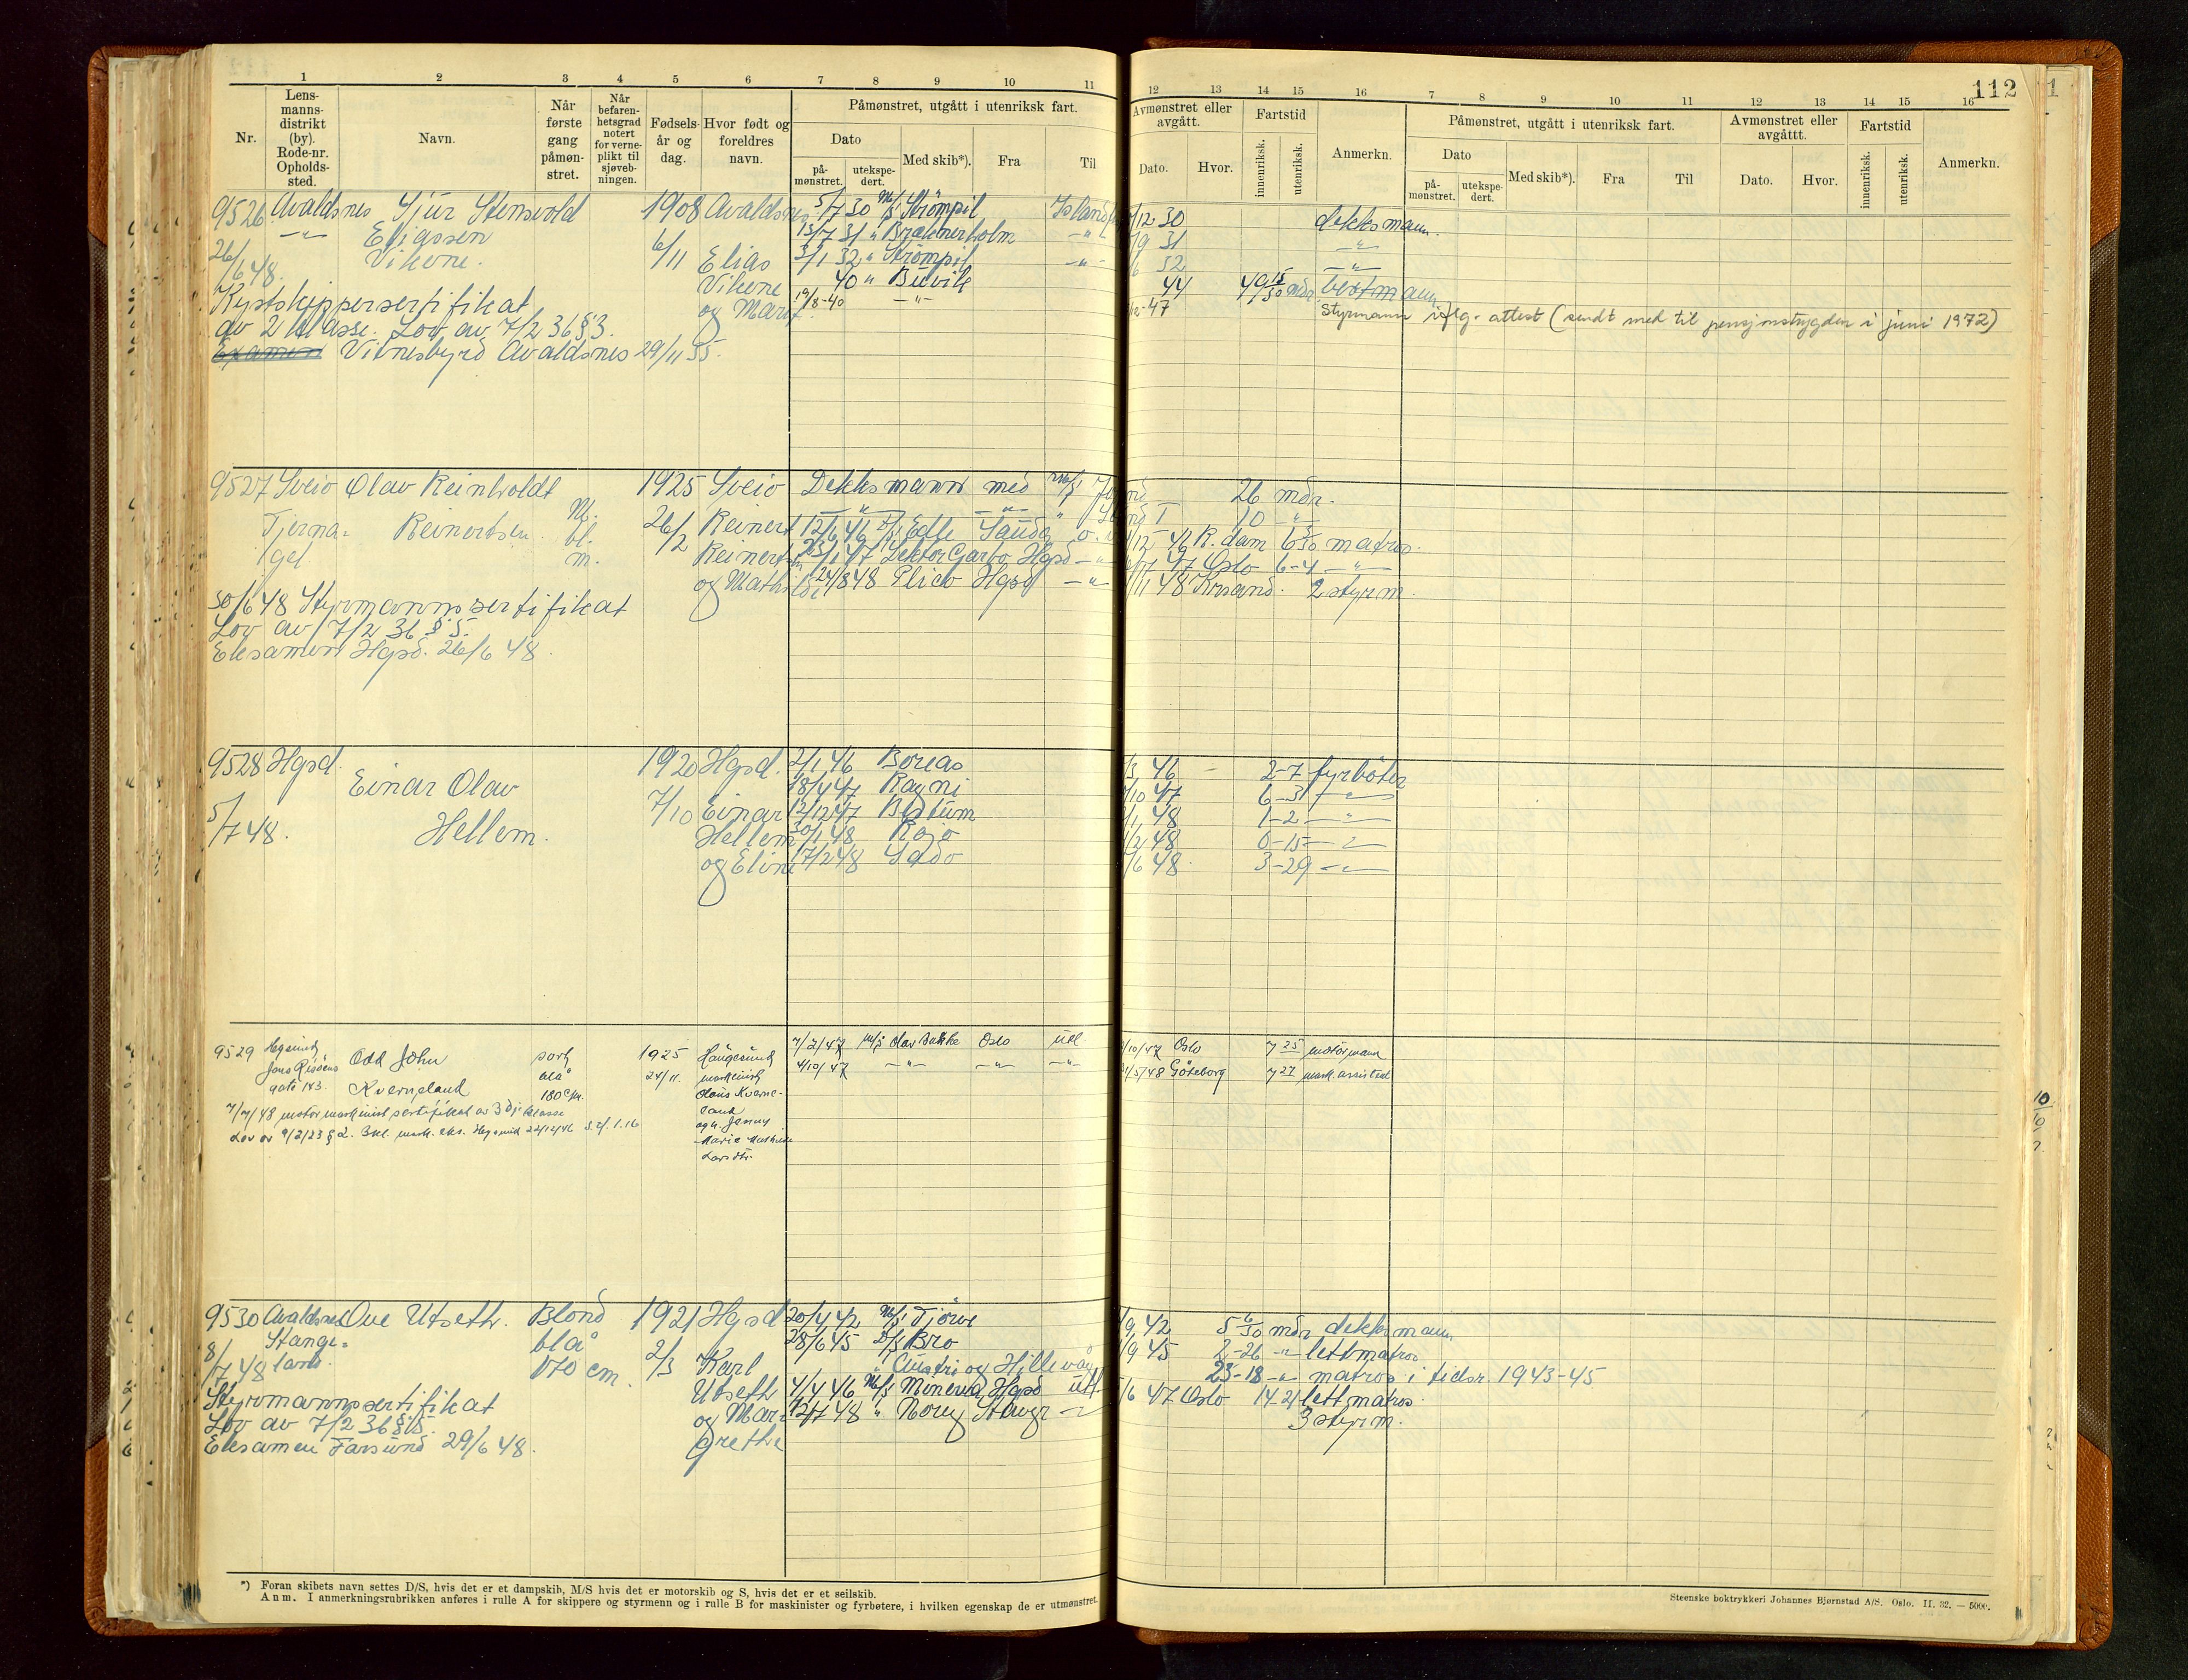 112
1 2 3 4 5 6 7 8 9 10 11 12 13 14 15 16 7 8 9 10 11 12 13 14 15 16
Nr.
Lensmannsdistrikt (by). Rode-nr. Opholdssted.
Navn.
Når første gang påmønstret.
Når befarenhetsgrad notert for verneplikt til sjøvebningen.
Fødselsår og dag.
Hvor født og foreldres navn.
Påmønstret, utgått i utenriksk fart.
Dato
påmønstret. utekspedert.
Med skib*).
Fra
Til
Avmønstret eller avgått.
Dato.
Hvor.
Fartstid
innenriksk. utenriksk.
Anmerkn.
Påmønstret, utgått i utenriksk fart.
Dato
påmønstret. utekspedert.
Med skib*).
Fra
Til
Avmønstret eller avgåttt.
Dato.
Hvor.
Fartstid
innenriksk. utenriksk.
Anmerkn.
9526 Avaldsnes Sjur Stensvold 1908 Avaldsnes 5/7 30 M/S Strömpil /12 30 dekksmann
-"- Eliassen 6/11 Elias 13/7 31 " -"- /9 31 -"-
26/6 48. Vikene. Vikene 3/1 32 " Strömpil -"- /6 32 -"-
40 " Buvik 44 49 15/30 mdr
Kystskippersertifikat og Marit 19/8-40 -"- -47 Styrmann iflg. attest (sendt med til pensjonstrygden i juni 1972)
av 2 klasse. Lov av 7/2 36 § 3.
Examen Vitnesbyrd Avaldsnes 29/11 35.
9527 Sveio Olav Reinholdt 1925 Sveio Dekksmann med M/S 26 mdr.
Tjerna- Reinertsen. bl. 26/2 Reinert 12/6 46 D/S Edle Sauda 10 -"-
gel m. Reinertsen 23/1 47 Lektor Garbo Hgsd -"- 46 R.dam 6 /30 matros.
og Mathilde 24/8 48 Plico Hgsd -"- 47 Oslo 6-4 -"-
30/6 48 Styrmannssertifikat 48 Krsand. 2 styrm.
Lov av 7/2 36 § 5.
Eksamen Hgsd. 26/6 48.
9528 Hgsd. Einar Olav 1920 Hgsd. 2/1 46 Boreas /3 46 - 2-7 fyrböter
18/4 47 Ragni /10 47 6-3 -"-
5/7 48. Hellem. 7/10 Einar 12/12 47 /1 48 1-2 -"-
Hellem 30/1 48 /2 48 0-15 -"-
og Eline 17/2 48 Sado /6 48. 3-29 -"-
9529 Hgsund Odd John sort 1925 Haugesund 7/2/47 M/S Olav Bakke Oslo utl /10/47 Oslo 7 25 motormann
Jens Risöens blå 24/11. maskinist 4/10/47 -"- -"- -"- /5/48 Göteborg 7 27 mask. assistent
gate 143. Kverneland 180 cm. Olaus Kverne-
land
7/7/48 motormaskinist sertifikat av 3dje klasse
og h. Jenny
Lov av 9/2/23 § 2. 3 kl. mask. eks. Hgsund 22/12/46
Marie
Larsdtr.
9530 Avaldsnes Ove Utseth. Blond 1921 Hgsd 20/4 42 M/S Tjörve /9 42 5 6/30 mdr dekksmann
8/7 48 Stange- blå 2/3 Karl 28/6 45 D/S Bro /9 45 2-26 -"- lettmatros
land. 170 cm. " Austri og Hillevåg 23-18 -"- matros i tidsr. 1943-45
Utseth 4/4 46 M/S Minerva Hgsd utl /6 47 Oslo 14-21 lettmatros
Styrmannssertifikat og Mar- 12/7 48 " Noreg Stavgr -"- 3 styrm.
Lov av 7/2 36 § 5.
grethe
Eksamen Farsund 29/6 48.
*) Foran skibets navn settes D/S, hvis det er et dampskib, M/S hvis det er motorskib og S, hvis det er et seilskib.
Anm. I anmerkningsrubrikken anføres i rulle A for skippere og styrmenn og i rulle B for maskinister og fyrbøtere, i hvilken egenskap de er utmønstret.
Steenske boktrykkeri Johannes Bjørnstad A/S. Oslo. II. 32. — 5000.